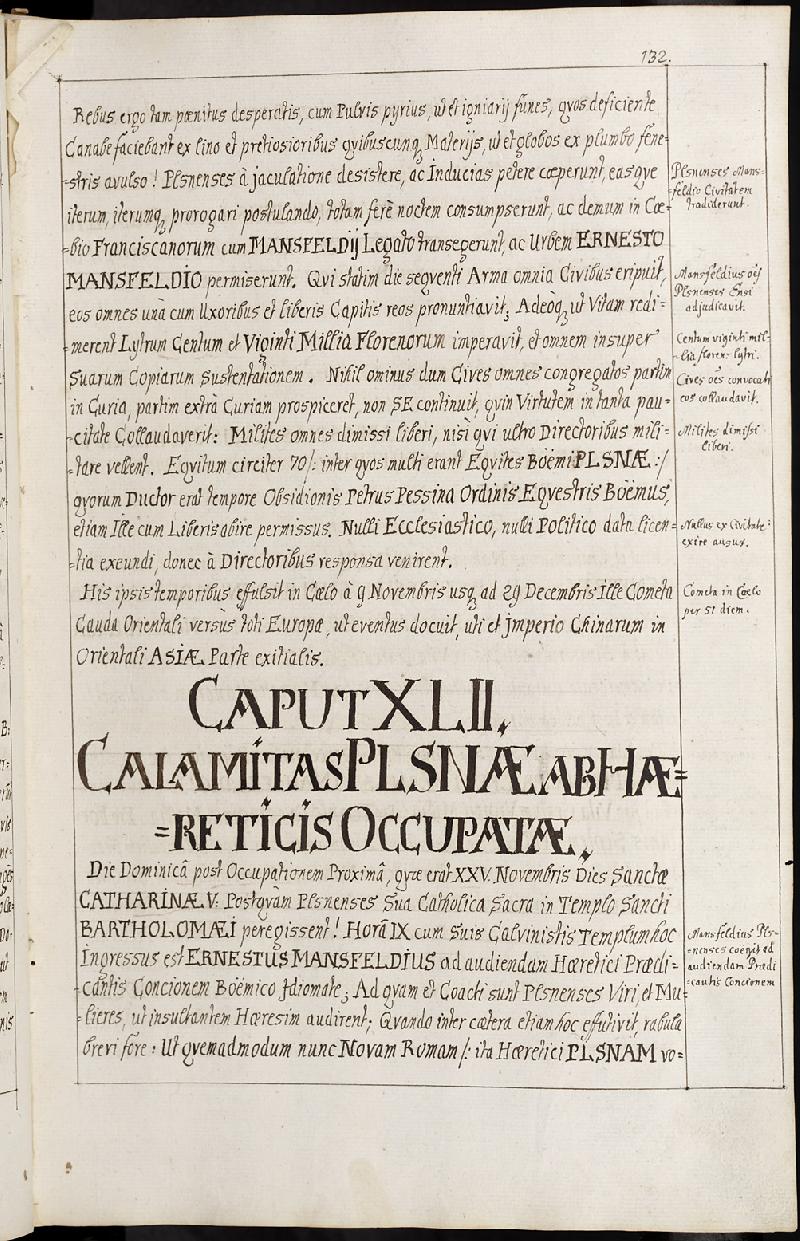 132.
Rebus ergo tam pænitus desperatis, cum Pulvis pyrius, ut et igniarij funes, qvos deficiente
Canabe faciebant ex lino et pretiosioribus qvibuscunq; Materijs, ut et globos ex plumbo fene=
=stris avulso! Plsnenses à jaculatione desistere, ac Inducias petere cœperunt, easqve
iterum, iterumq; prorogari postulando, totam ferè noctem consumpserunt, ac demum in Cœ=
=bio Franciscanorum cum MANSFELDij Legato transegerunt, ac Urbem ERNESTO
MANSFELDIO permiserunt. Qvi statim die seqventi Arma omnia Civibus eripuit,
eos omnes unà cum Uxoribus et liberis Capitis reos pronuntiavit; Adeòq; ut Vitam redi=
=merent Lytrum Centum et Viginti Millia Florenorum imperavit, et omnem insuper
Suarum Copiarum Sustentationem. Nihilominus dum Cives omnes congregatos partim
in Curia, partim extrà Curiam prospiceret, non SE continuit, qvin Virtutem in tanta pau=
=citate Collaudaverit: Milites omnes dimissi liberi, nisi qvi ultro Directoribus mili=
=tare vellent. Eqvitum circiter 70/: inter qvos multi erant Eqvites Boëmi PLSNÆ :/
qvorum Ductor erat tempore Obsidionis Petrus Pessina Ordinis Eqvestris Boëmus,
etiam Ille cum Liberis abire permissus. Nulli Ecclesiastico, nulli Politico data licen=
=tia exeundi, donec à Directoribus responsa venirent.
His ipsis temporibus effulsit in Cœlo à 9 Novembris usq; ad 29 Decembris Ille Cometa
Cauda Orientali versùs toti Europæ, ut eventus docuit, uti et jmperio Chinarum in
Orientali ASIÆ Parte exitialis.
CAPUT XLII.
CALAMITAS PLSNÆ AB HÆ=
=RETICIS OCCUPATÆ.
Die Dominicâ post Occupationem Proximâ, qvæ erat XXV. Novembris Dies Sanctæ
CATHARINÆ V. Postqvàm Plsnenses Sua Catholica Sacra in Templo Sancti
BARTHOLOMÆI peregissent! Horâ IX cum Suis Calvinistis Templum hoc
Ingressus est ERNESTUS MANSFELDIUS ad audiendam Hæretici Prædi=
=cantis Concionem Boëmico Jdiomate; Ad qvam et Coacti sunt Plsnenses Viri, et Mu=
=lieres, ut insultantem Hæresim audirent; Qvando inter cætera etiam hoc effutivit, rabula
brevi fore: Ut qvemadmodum nunc Novam Romam /: ita Hæretici PLSNAM vo=
Plsnenses Mans=
=feldio Civitatem
tradiderunt.
Mansfeldius oẽs
Plsnenses Ensi
adjudicavit.
Centum viginti mil=
=lia floren: lytri.
Cives oẽs convocatos
eos collaudavit.
Milites dimissi
liberi.
Nullus ex Civitate
exire ausus.
Cometa in Cœlo
per 51 diem.
Mansfeldius Pls=
=nenses coëgit ad
audiendam Prædi
=cantis Concionem